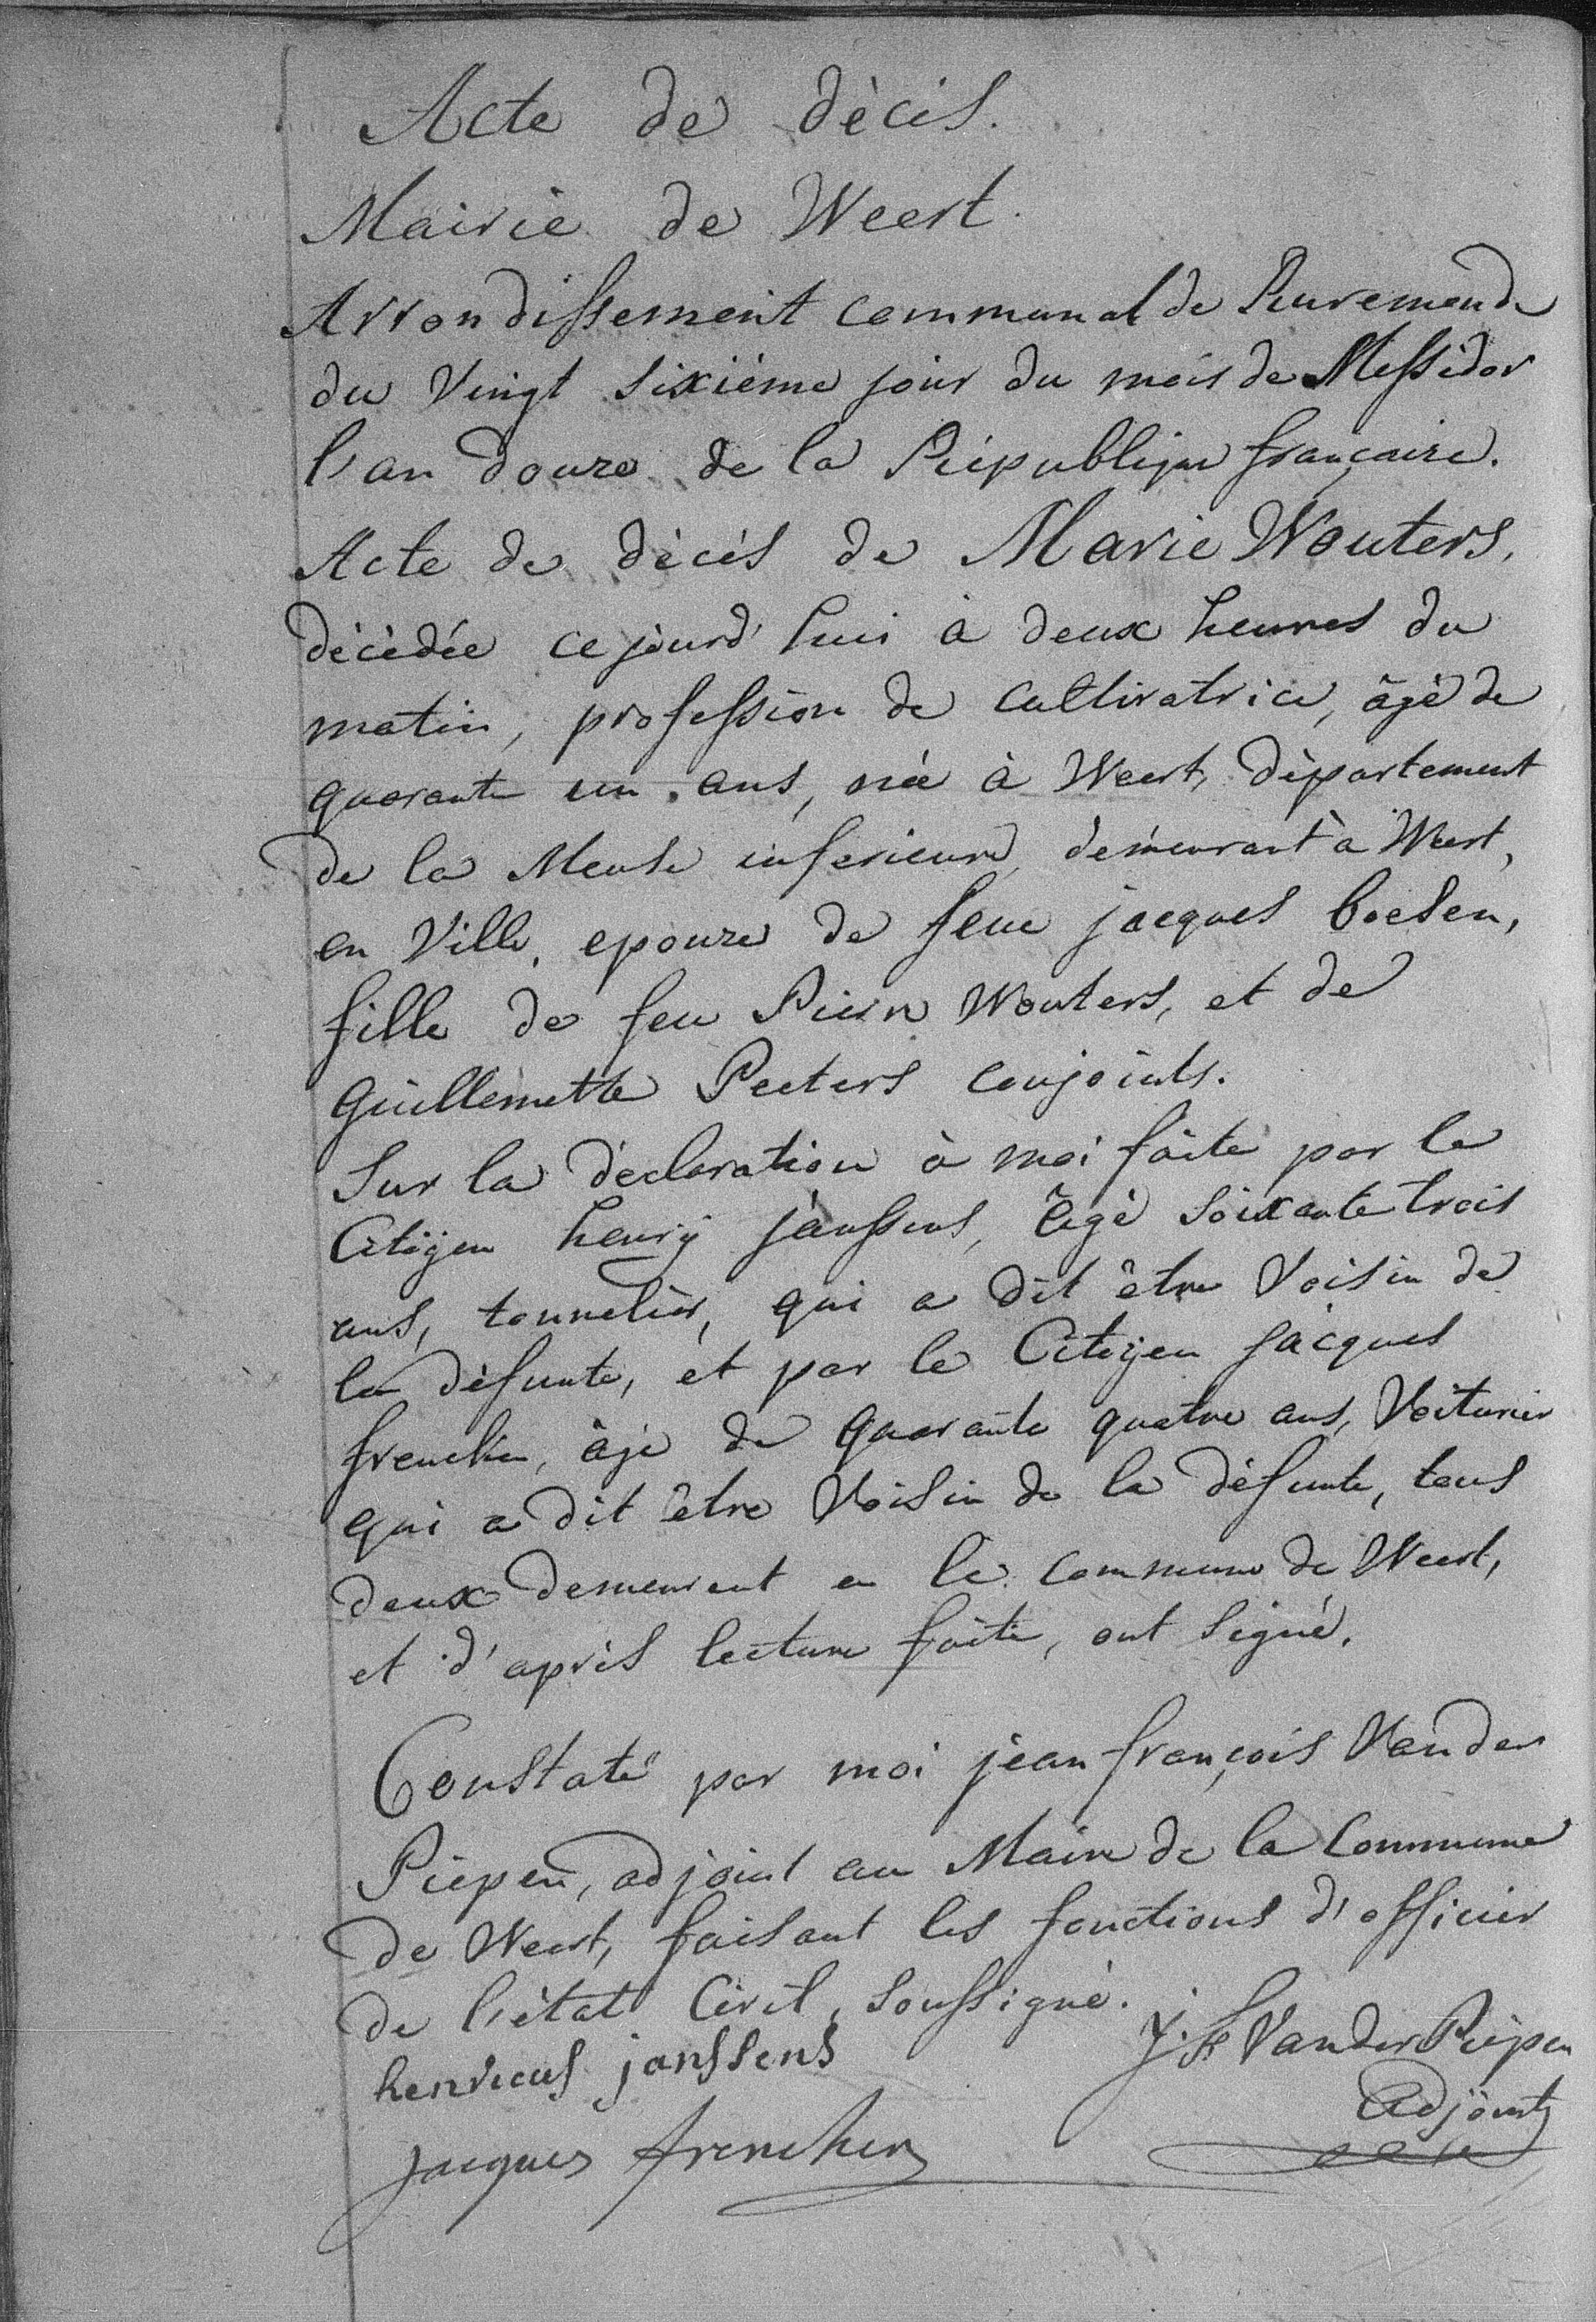 Acte de décès.
Mairie de Weert.
Arrondissement communal de Ruremonde
du Vingt sixième jour du mois de Messidor
l'an douze de la République française.
Acte de décès de Marie Wouters,
décédée ce jourd'hui à deux heures du
matin, profession de cultivatrice, âgé de
quarante un ans, née à Weert, département
de la Meuse inferieure, demeurant à Weert,
en Ville, epouze de feue jacques boesen,
fille de feu Pierre Wouters, et de
Guillemette Peeters conjoints.
Sur la déclaration à moi faite par le
Citoyen henry janssens, âgé soixante trois
ans, tonnelier, qui a dit être Voisin de
la défunte, et par le Citoyen jacques
frencken, âgé de quarante quatre ans, Voiturier
qui a dit être Voisin de la défunte, tous
deux demeurant en la commune de Weert,
et d'après lecture faite, ont signé.
Constaté par moi jean françois Vander
Piepen, adjoint au Maire de la Commune
de Weert, faisant les fonctions d'officier
de l'état Civil, soussigné.
henricus janssens
J. F. VanderPiepen
Adjoint
jacques frencken